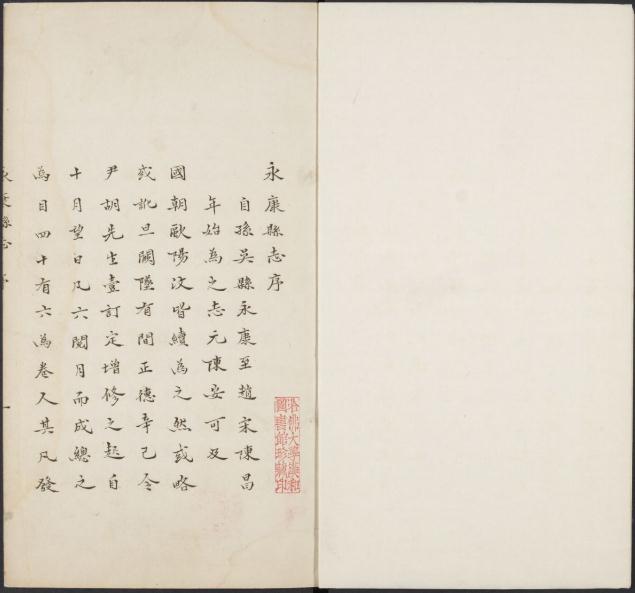 永康縣志序
自孫吳縣永康至趙宋陳昌
年始為之志元陳安可及
國朝歐陽汶喈續為之然或略
或訛且闕墜有間正德辛巳令
尹胡先生壹訂定增修之起自
十月望日凡六閱月而成總之
為目四十有六為卷八其凡發
永康縣志 序 一
哈佛大學漢和
圖書館珍藏印